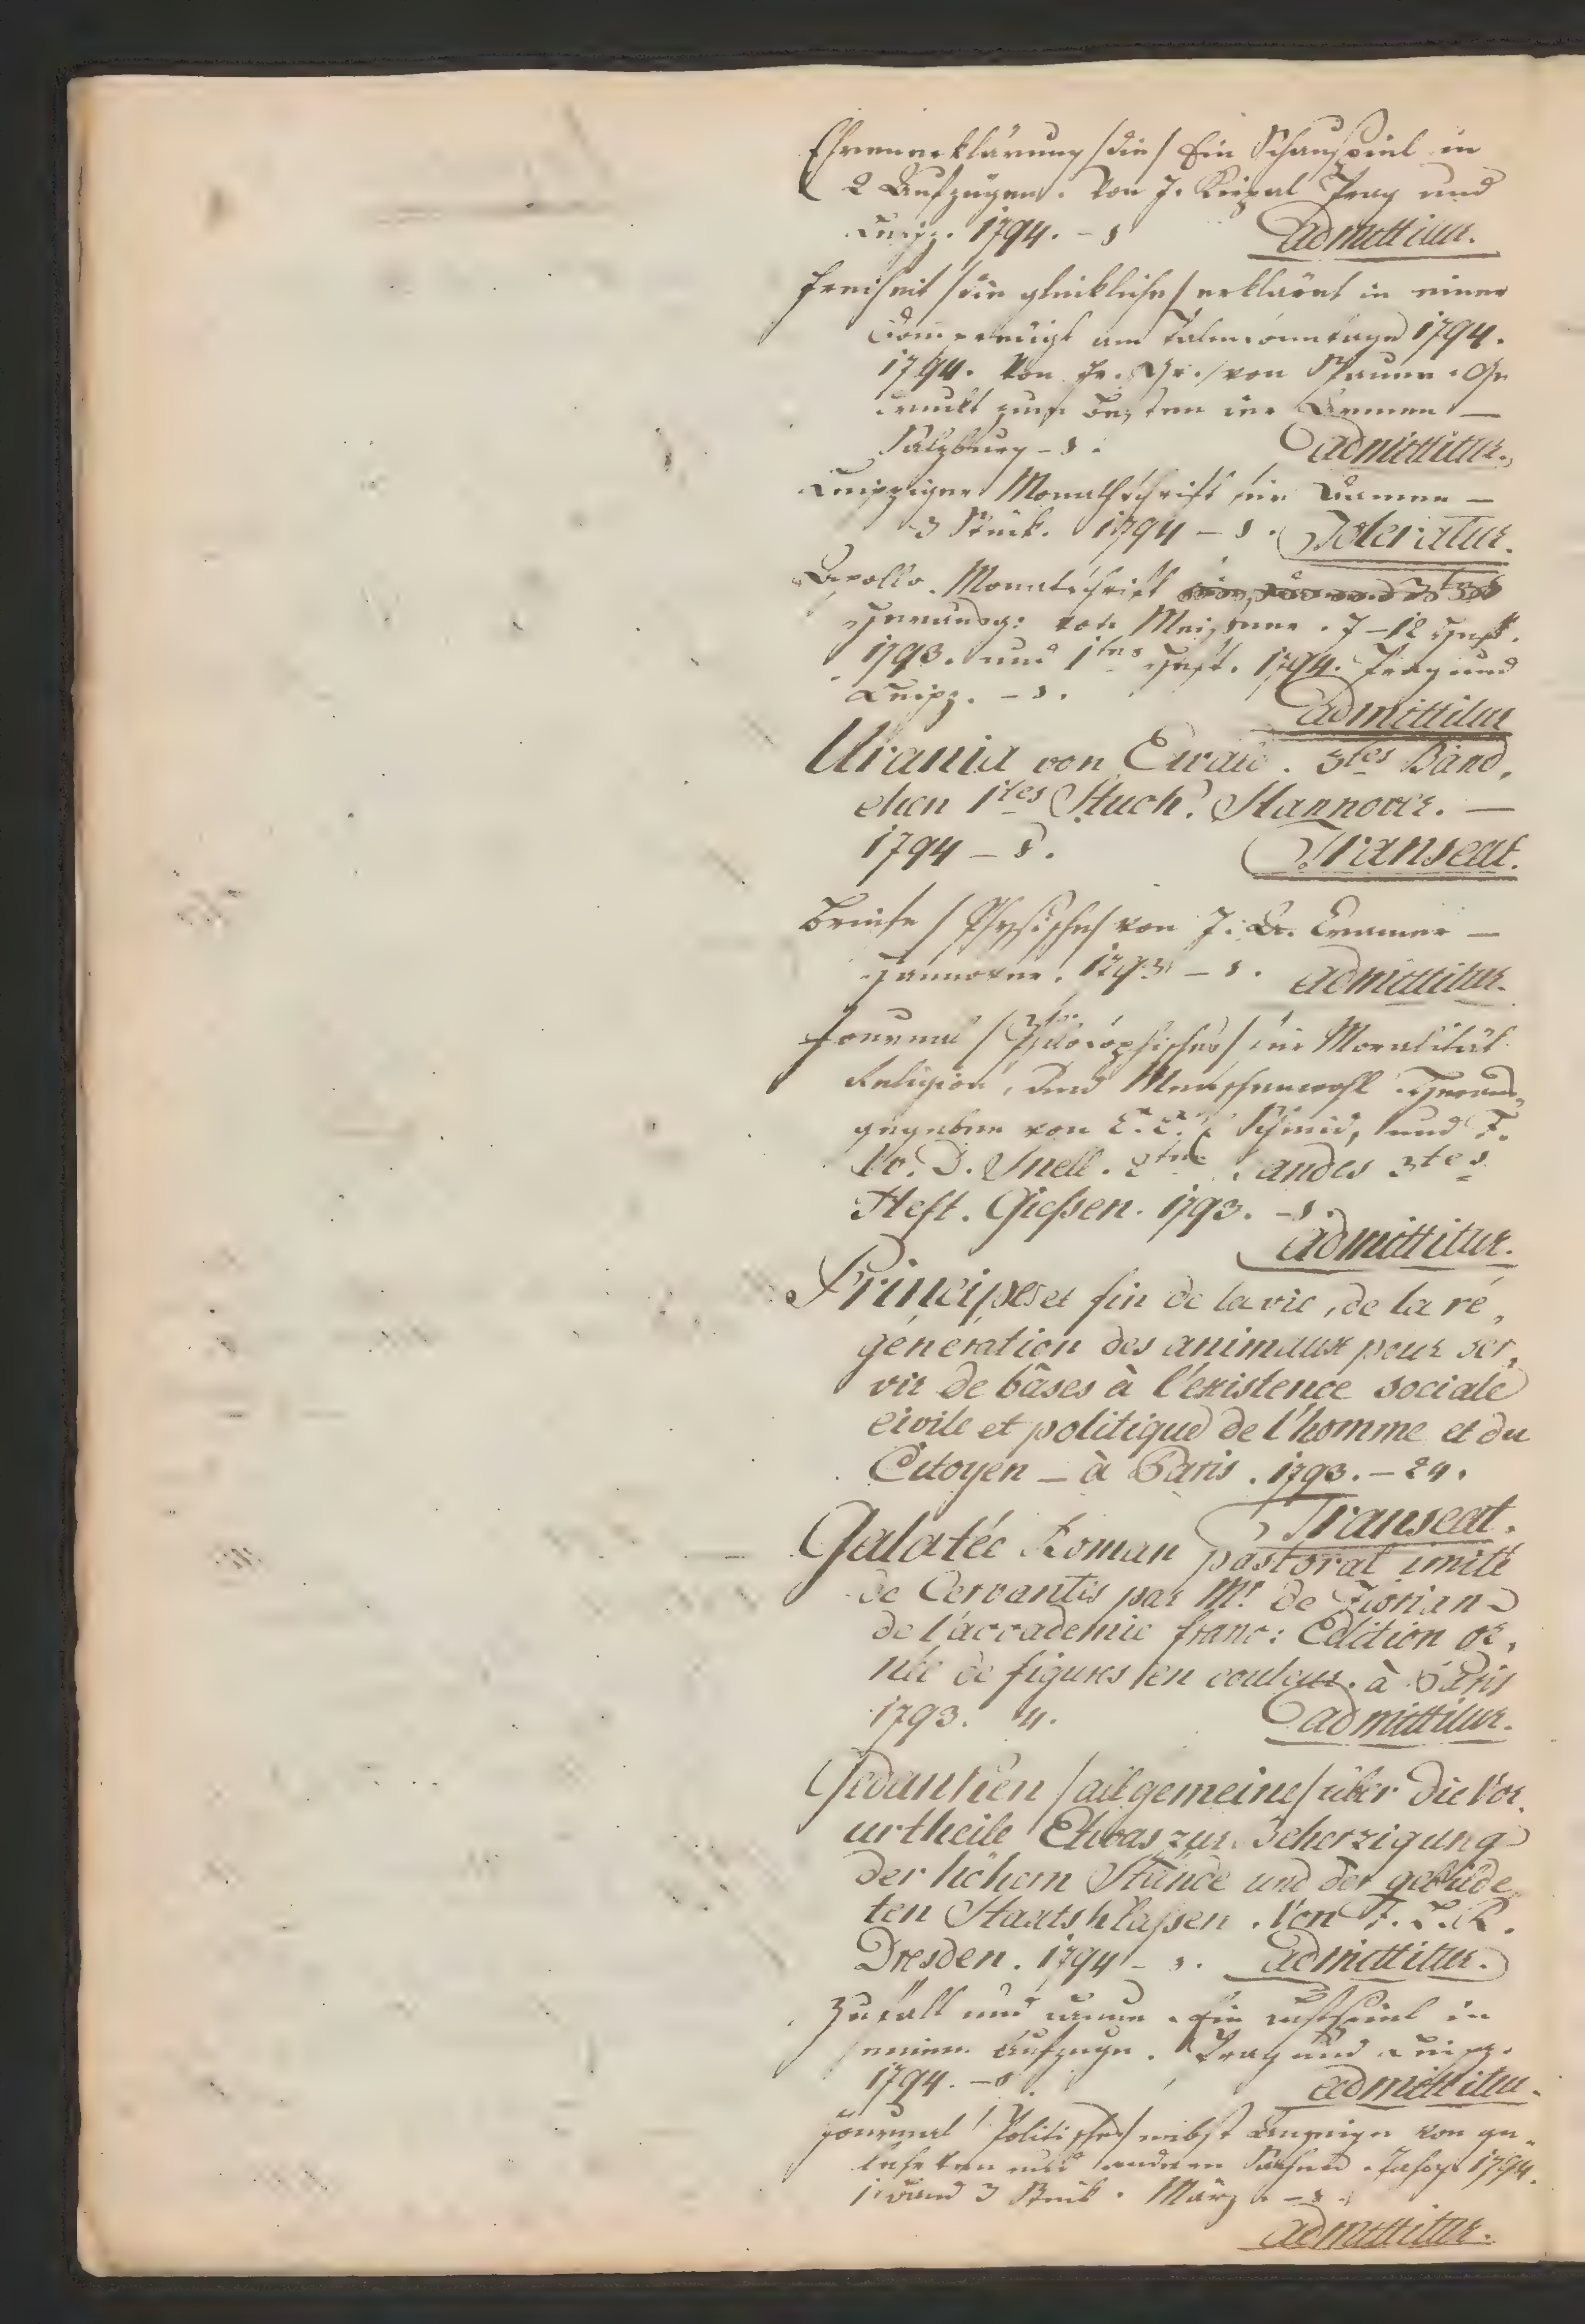 Ehrenerklärung /die/ Ein Schauspiel in
2 Aufzügen. Von J. Prag und
Leipz. 1794. – 8 Admittitur.
Freiheit /die glückliche/ erklärt in einer
am Palmsonntage 1794.
1794. Von Fr. Gr. von Spaur. Ge
druckt zum Besten der Armen –
Salzburg – 8. Admittitur.
Leipziger Monathschrift für Damen –
3 Stück. 1794 – 8. Toleratur.
Apollo. Monatschrift
Herausg: von Meißner. 7–12 Heft.
1793. und 1tes Heft. 1794. Prag und
Leipz. – 8. Admittitur
Urania von Ewald. 3tes Bänd,
chen 1tes Stuck. Hannover. –
1794 – 8. Transeat.
Briefe /Physische/ von J. A. Cramer –
Hannover. 1793 – 8. Admittitur.
Journal /Philosophisches/ für Moralität
Religion, und Menschenwohl. Heraus,
gegeben von C. C. E Schmid, und F.
W. D. Snell. 2ten Bandes 3tes
Heft. Gießen. 1793. – 8.
Admittitur.
Principes et fin de la vie, de la ré,
génération des animaux pour ser,
vir de bâses à l'existence sociale
civile et politique de l'homme et du
Citoyen – à Paris. 1793. – 24.
Transeat.
Galatée Roman pastoral imité
de Cervantis par Mr. de Florian –
de l'accademie franc: Edition or,
née de figures en couleur. à Paris
1793. 4. Admittitur.
Gedanken /allgemeine/ über die Vor,
urtheile Etwas zur Beherzigung
der höhern Stände und der gebilde,
ten Staatsklaßen. Von F. L. R.
Dresden. 1794 – 8. Admittitur.
Zufall und Laune. Ein Lustspiel in
einem Aufzuge. Prag und Leipz.
1794. – 8. Admittitur.
Journal /Politisches/ nebst Anzeige von ge,
lehrten und anderen Sachen. Jahrg. 1794.
1. Band 3 Stück. März. – 8.
Admittitur.